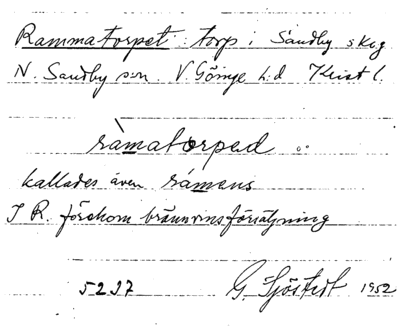 Rammatorpet: torp i Sandby skog
N. Sandby sn. V. Göinge h.d Krist l.
ràmatorped
kallades även rámens
I R. förekom brännvinsförsäljning
5237 G. Sjöstedt 1952